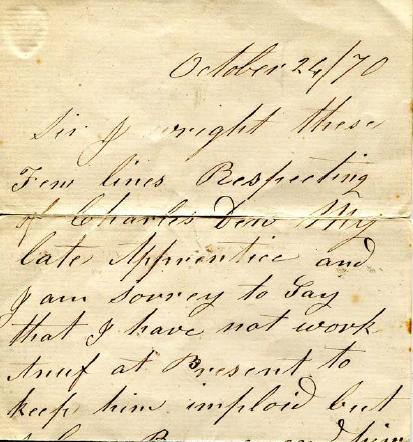 October 24/70
Sir I wright these
Few lines Respecting
of Charles Dew My
late Apprentice and
I am sorrey to Say
that I have not work
Anuf at Present to
keep him imploid but